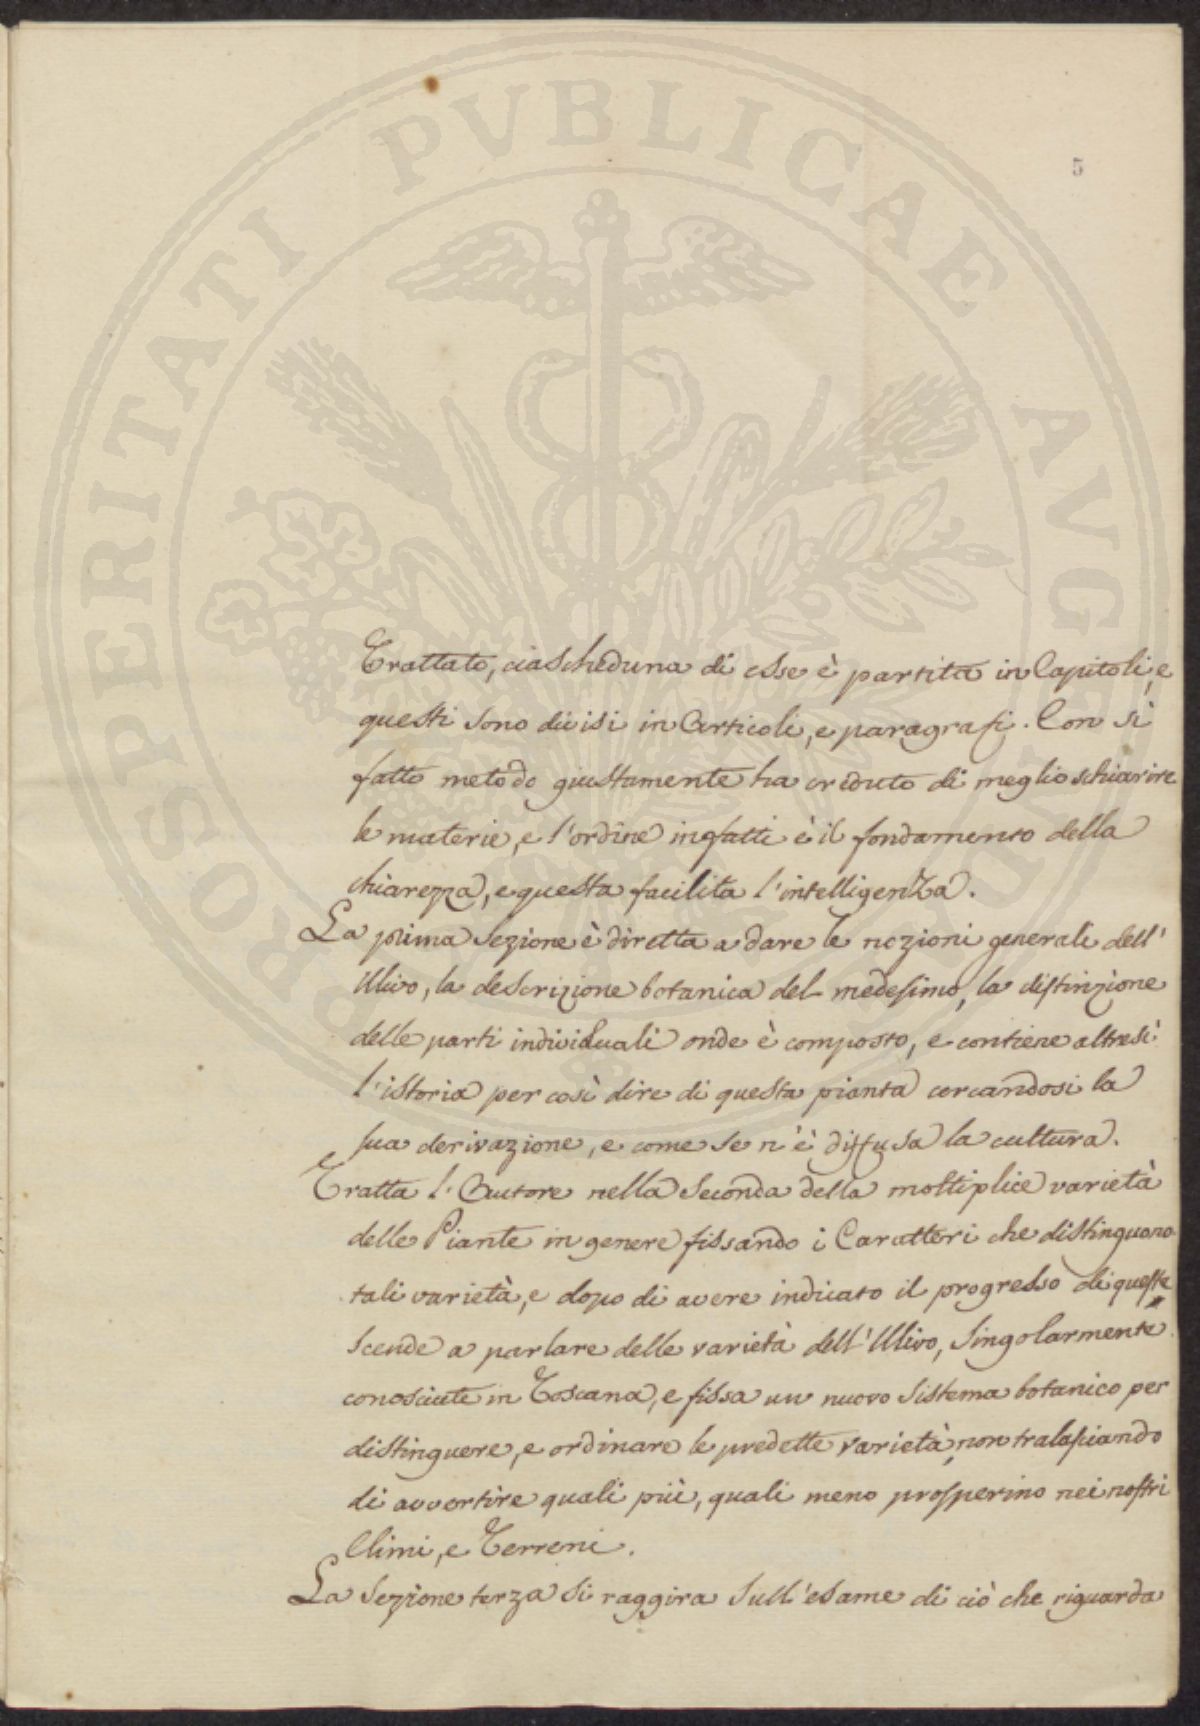 PROSPERITATI PVBLICAE AVGENDAE
5
Trattato, ciascheduna di esse è partita in Capitoli, e
questi sono divisi in Articoli, e paragrafi. Con sì
fatto metodo giustamente ha creduto di meglio schiarire
le materie, e l'ordine infatti è il fondamento della
chiarezza, e questa facilita l'intelligenza.
La prima Sezione è diretta a dare le nozioni generali dell'
Ulivo, la descrizione botanica del medesimo, la distinzione
delle parti individuali onde è composto, e contiene altresì
l'istoria per così dire di questa pianta cercandosi la
sua derivazione, e come se n'è diffusa la cultura.
Tratta l'Autore nella Seconda della moltiplice varietà
delle Piante in genere fissando i Caratteri che distinguono
tali varietà, e dopo di avere indicato il progresso di queste
scende a parlare delle varietà dell'Ulivo, singolarmente
conosciute in Toscana, e fissa un nuovo sistema botanico per
distinguere, e ordinare le predette varietà, non tralasciando
di avvertire quali più, quali meno prosperino nei nostri
Climi, e Terreni.
La Sezione terza si raggira sull'esame di ciò che riguarda